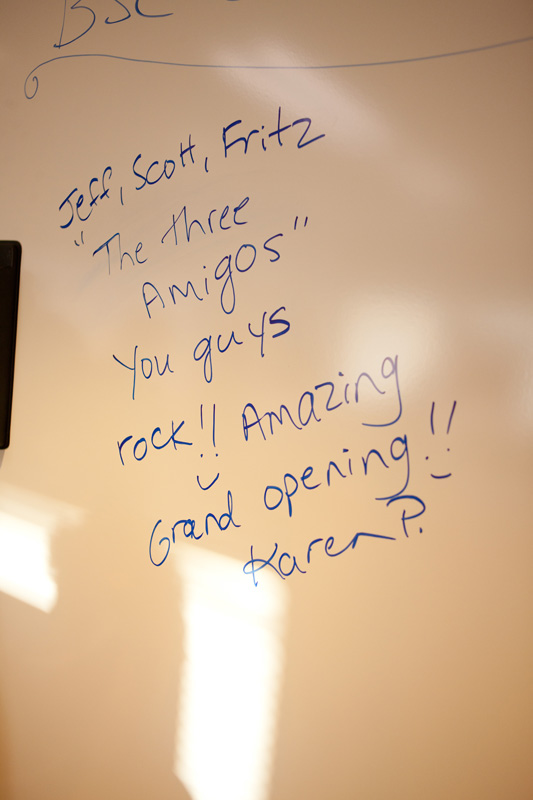 BSC
Jeff, Scott, Fritz
"The three
Amigos"
You guys
rock!! Amazing
Grand opening!!
Karen P.